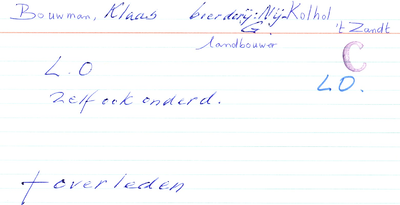 Bouwman, Klaas boerderij: Nij-Kolhol
G.
't Zandt
landbouwer
C
L.O
LO.
zelf ook onderd.
† overleden